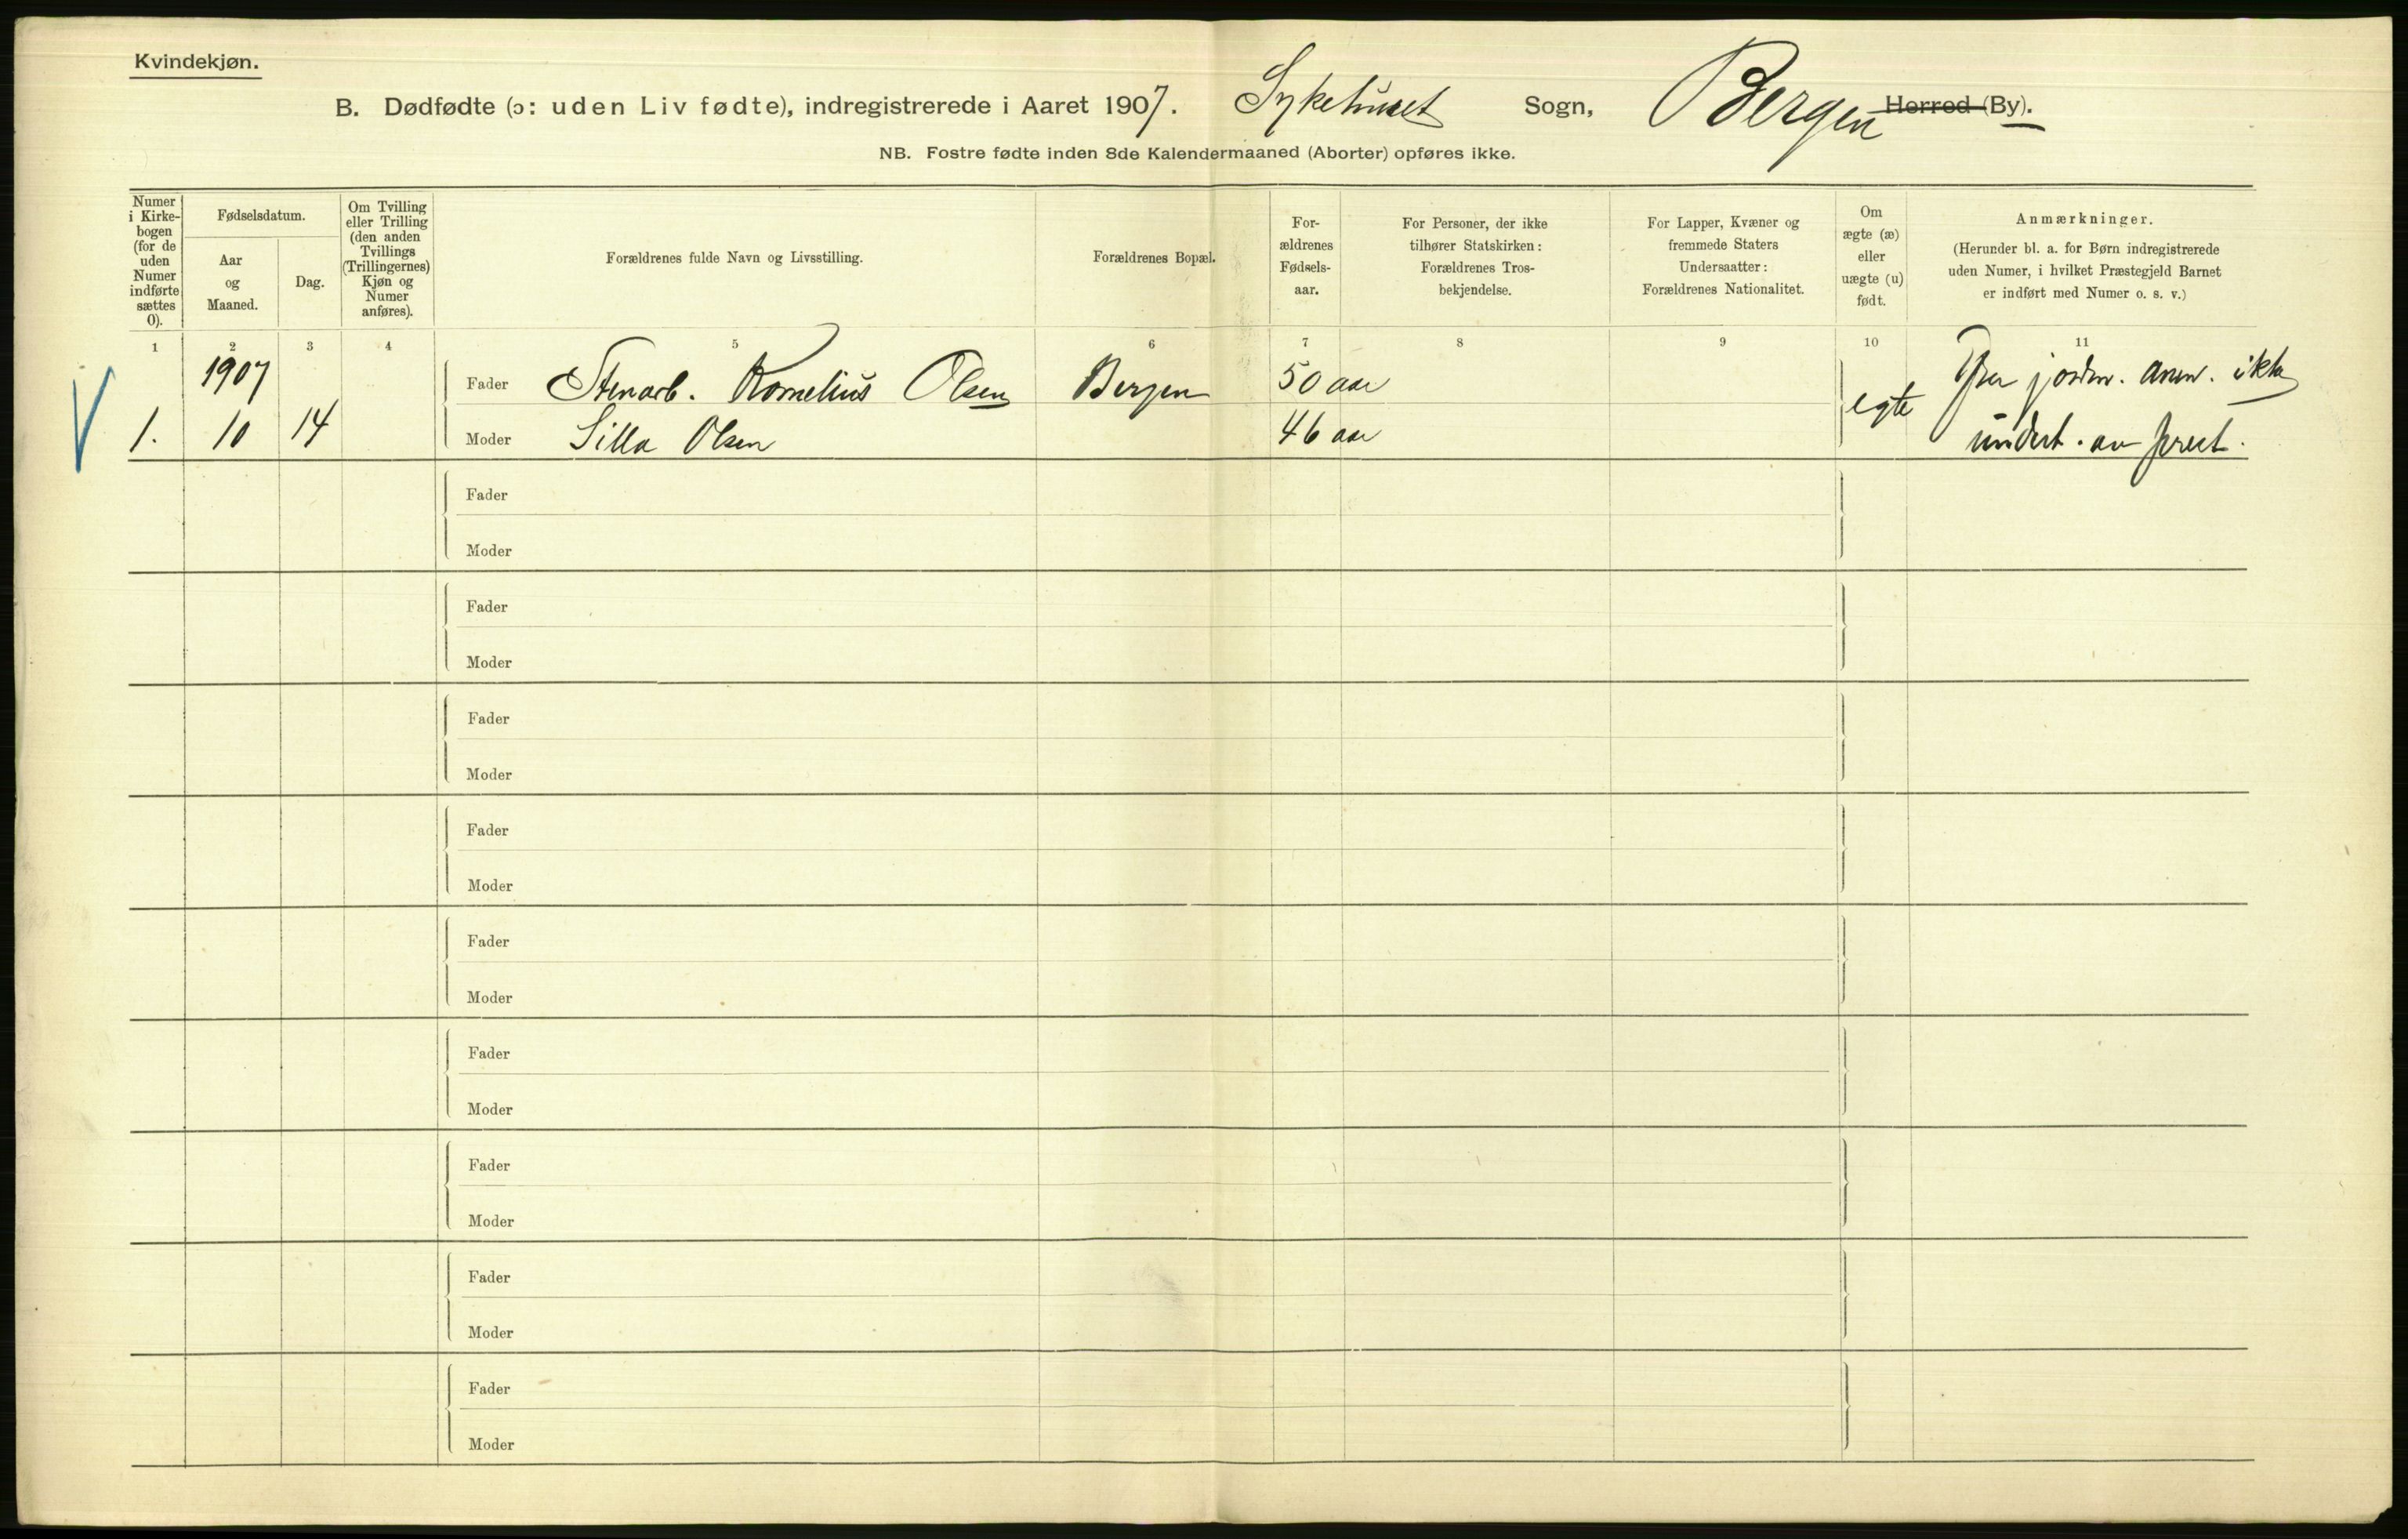 Kvindekjøn.
B. Dødfødte (ɔ: uden Liv fødte), indregistrerede i Aaret 1907. Sykehuset Sogn, Bergen Herred (By).
NB. Fostre fødte inden 8de Kalendermaaned (Aborter) opføres ikke.
Numer
i Kirke-
bogen
(for de
uden
Numer
indførte
sættes
0).
Fødselsdatum.
Aar
og
Maaned.
Dag.
Om Tvilling
eller Trilling
(den anden
Tvillings
(Trillingernes)
Kjøn og
Numer
anføres).
Forældrenes fulde Navn og Livsstilling.
Forældrenes Bopæl.
For-
ældrenes
Fødsels-
aar.
For Personer, der ikke
tilhører Statskirken:
Forældrenes Tros-
bekjendelse.
For Lapper, Kvæner og
fremmede Staters
Undersaatter:
Forældrenes Nationalitet.
Om
ægte (æ)
eller
uægte (u)
født.
Anmærkninger.
(Herunder bl. a. for Børn indregistrerede
uden Numer, i hvilket Præstegjeld Barnet
er indført med Numer o. s. v.)
1 2 3 4 5 6 7 8 9 10 11
1907
Fader Stenarb. Kornelius Olsen Bergen 50 aar
1. 10 14 Moder Silla Olsen 46 aar
egte
jordm. anm. ikke
undert. av prest.
Fader
Moder
Fader
Moder
Fader
Moder
Fader
Moder
Fader
Moder
Fader
Moder
Fader
Moder
Fader
Moder
Fader
Moder